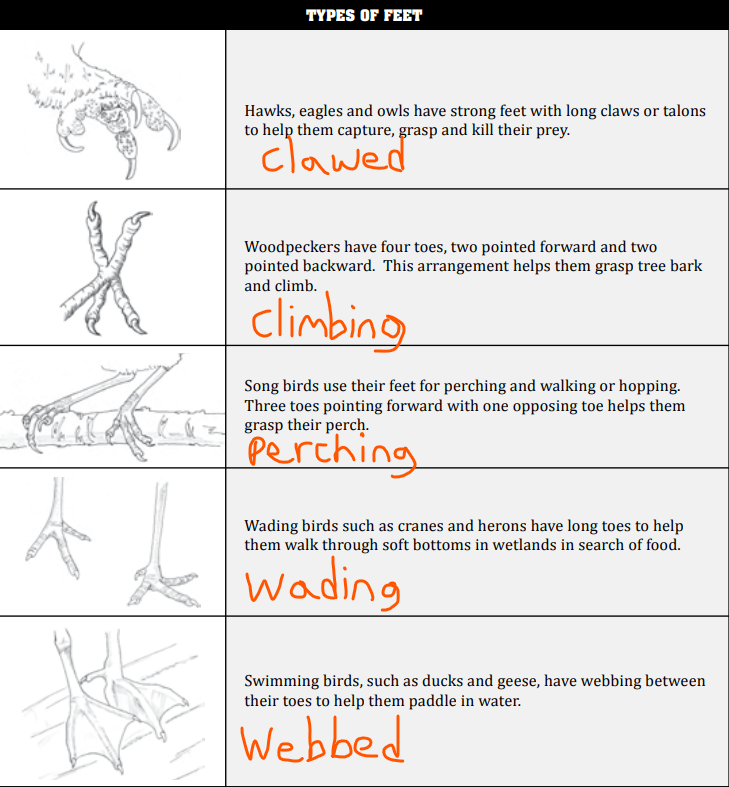 TYPES OF FEET
Hawks, eagles and owls have strong feet with long claws or talons
to help them capture, grasp and kill their prey.
Clawed
Woodpeckers have four toes, two pointed forward and two
pointed backward. This arrangement helps them grasp tree bark
and climb.
Climbing
Song birds use their feet for perching and walking or hopping.
Three toes pointing forward with one opposing toe helps them
grasp their perch.
Perching
Wading birds such as cranes and herons have long toes to help
them walk through soft bottoms in wetlands in search of food.
Wading
Swimming birds, such as ducks and geese, have webbing between
their toes to help them paddle in water.
Webbed